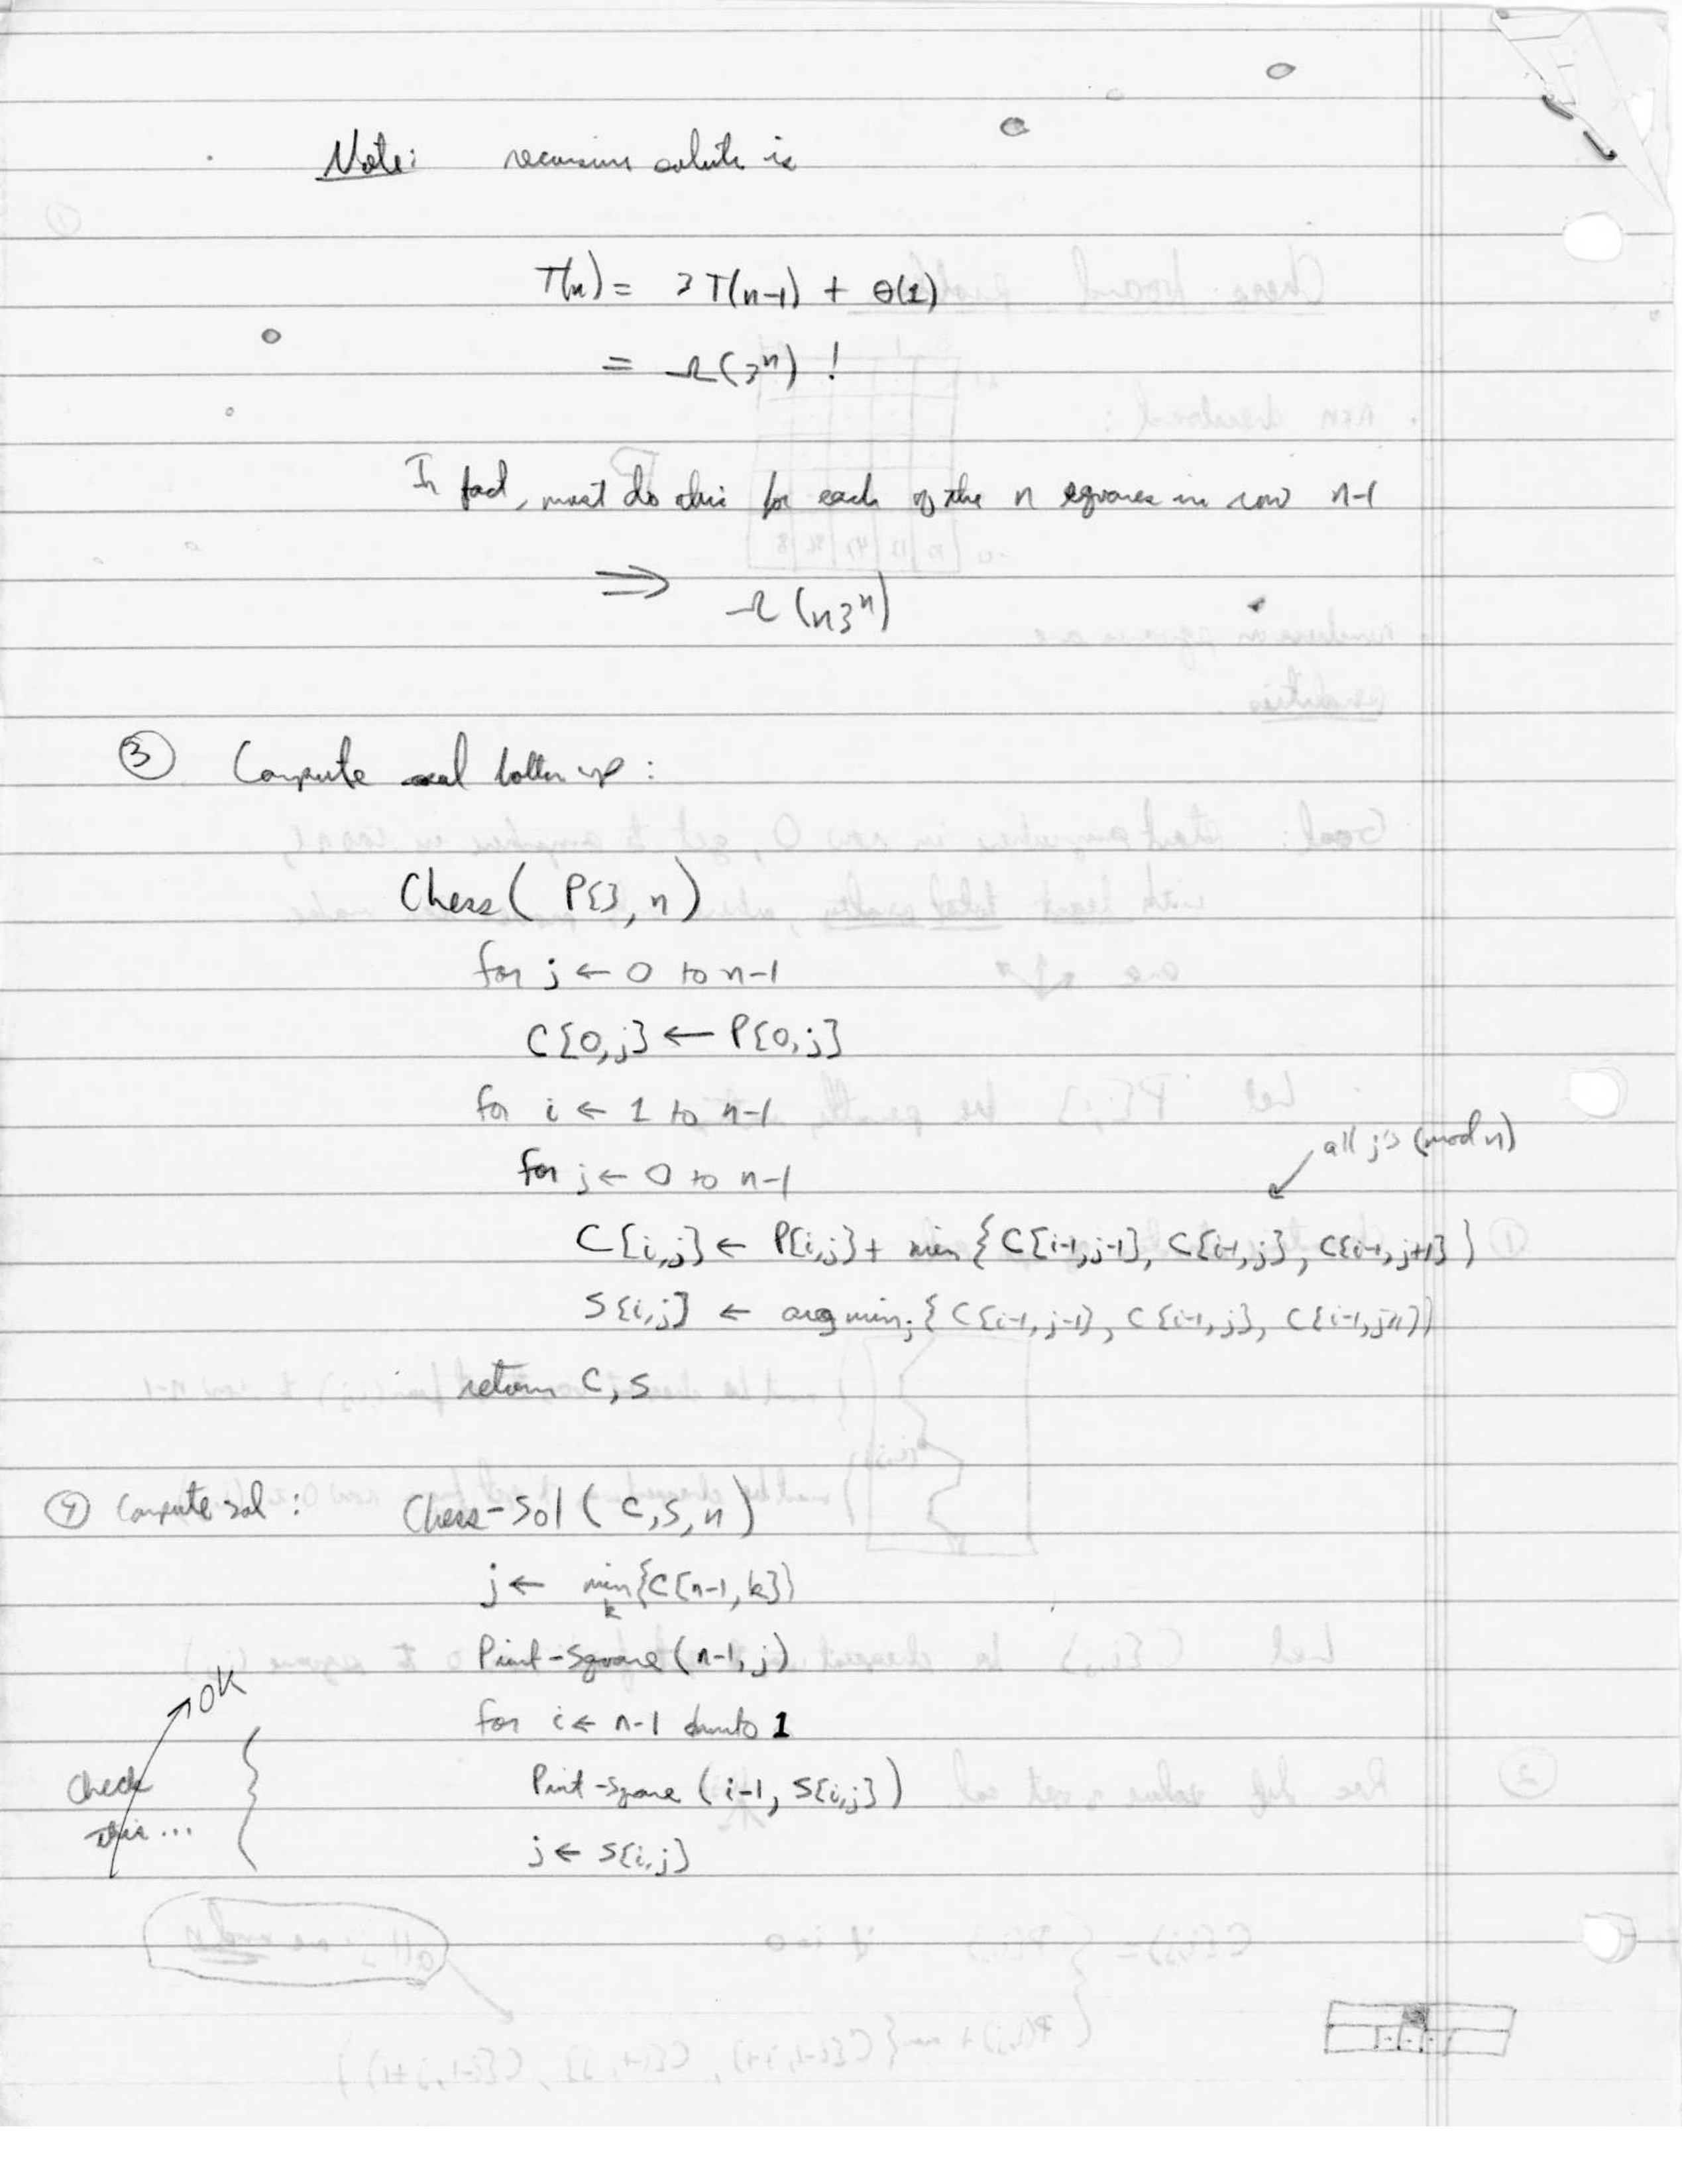 Note: recursive solute is
T(n) = 3T(n-1) + Θ(1)
= Ω(3ⁿ) !
In fact, must do this for each of the n squares in row n-1
⇒ Ω(n3ⁿ)
③ Compute bottom up:
Chess( P[], n)
for j ← 0 to n-1
C[0,j] ← P[0,j]
for i ← 1 to n-1
all j's (mod n)
for j ← 0 to n-1
C[i,j] ← P[i,j] + min{C[i-1,j-1], C[i-1,j], C[i-1,j+1]}
S[i,j] ← argminⱼ{C[i-1,j-1], C[i-1,j], C[i-1,j+1]}
return C, S
④ Compute sol: Chess-Sol (C,S,n)
j ← min{C[n-1,k]}
k
Print-Square (n-1, j)
OK
for i ← n-1 downto 1
Check
Print-Square (i-1, S[i,j])
this...
j ← S[i,j]